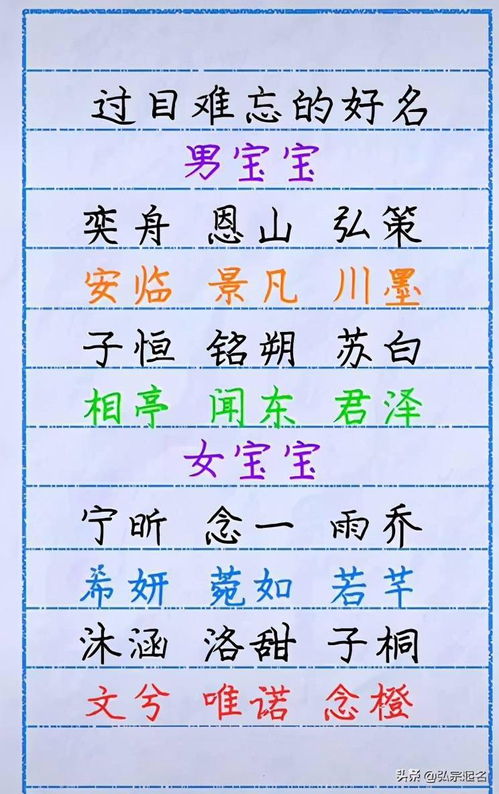 过目难忘的好名
男宝宝
奕舟 恩山 弘策
安临 景凡 川墨
子恒 铭朔 苏白
相亭 闻东 君泽
女宝宝
宁昕 念一 雨乔
希妍 菀如 若芊
沐涵 洛甜 子桐
文兮 唯诺 念橙
头条 @弘宗起名